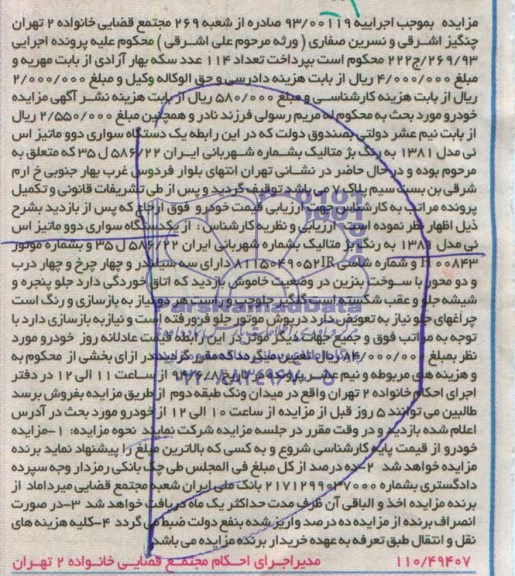 مزایده بموجب اجراییه ۹۳/۰۰۱۱۹ صادره از شعبه ۲۶۹ مجتمع قضایی خانواده ۲ تهران
چنگیز اشرفی و نسرین صفاری ( ورثه مرحوم علی اشرفی ) محکوم علیه پرونده اجرایی
۲۶۹/۹۳/ج۲۲۲ محکوم است بپرداخت تعداد ۱۱۴ عدد سکه بهار آزادی از بابت مهریه و
مبلغ ۴/۰۰۰/۰۰۰ ریال از بابت هزینه دادرسی و حق الوکاله وکیل و مبلغ ۲/۰۰۰/۰۰۰
ریال از بابت هزینه کارشناسی و مبلغ ۵۸۰/۰۰۰ ریال از بابت هزینه نشر آگهی مزایده
خودرو مورد بحث به محکوم له مریم رسولی فرزند نادر و همچنین مبلغ ۲/۵۵۰/۰۰۰ ریال
از بابت نیم عشر دولتی بصندوق دولت که در این رابطه یک دستگاه سواری دوو ماتیز اس
نی مدل ۱۳۸۱ به رنگ بژ متالیک بشماره شهربانی ایران ۵۸۶/۲۲ ل ۳۵ که متعلق به
مرحوم بوده و در حال حاضر در نشانی تهران انتهای بلوار فردوس غرب بهار جنوبی خ ارم
شرقی بن بست سیم پلاک ۷ می باشد توقیف گردید و پس از طی تشریفات قانونی و تکمیل
پرونده مراتب به کارشناس جهت ارزیابی قیمت خودرو فوق ارجاع که پس از بازدید بشرح
ذیل اظهار نظر نموده است . ارزیابی و نظریه کارشناس : از یکدستگاه سواری دوو ماتیز اس
نی مدل ۱۳۸۱ به رنگ بژ متالیک بشماره شهربانی ایران ۵۸۶/۲۲ ل ۳۵ و بشماره موتور
۰۰۸۴۳ و شماره شاسی ۸۱۱۵۰۴۹۰۵۲IR دارای سه سیلندر و چهار چرخ و چهار درب
و دو محور با سوخت بنزین در وضعیت خاموش بازدید که اتاق خوردگی دارد جلو پنجره و
شیشه جلو و عقب شکسته است گلگیر جلو چپ و راست هر دو نیاز به بازسازی و رنگ است
چراغهای جلو نیاز به تعویض دارد درپوش موتور جلو فرورفته است و نیاز به بازسازی دارد با
توجه به مراتب فوق و جمیع جهات دیگر موثر در این رابطه قیمت عادلانه روز خودرو مورد
نظر بمبلغ ۸۴/۰۰۰/۰۰۰ ریال تعیین میگردد که مقرر گردید در ازای بخشی از محکوم به
و هزینه های مربوطه و نیم عشر روز از ساعت ۱۱ الی ۱۲ در دفتر
اجرای احکام خانواده ۲ تهران واقع در میدان ونک طبقه دوم از طریق مزایده بفروش برسد
طالبین می توانند ۵ روز قبل از مزایده از ساعت ۱۰ الی ۱۲ از خودرو مورد بحث در آدرس
اعلام شده بازدید و در وقت مقرر در جلسه مزایده شرکت نمایند نحوه مزایده: ۱-مزایده
خودرو از قیمت پایه کارشناسی شروع و به کسی که بالاترین مبلغ را پیشنهاد نماید برنده
مزایده خواهد شد ۲-ده درصد از کل مبلغ فی المجلس طی چک بانکی رمزدار وجه سپرده
دادگستری بشماره ۲۱۷۱۲۹۹۰۳۷۰۰۰ بانک ملی ایران شعبه مجتمع قضایی میرداماد از
برنده مزایده اخذ و الباقی آن ظرف مدت حداکثر یک ماه دریافت خواهد شد ۳-در صورت
انصراف برنده از مزایده ده درصد واریز شده بنفع دولت ضبط می گردد ۴-کلیه هزینه های
نقل و انتقال طبق تعرفه به عهده خریدار برنده مزایده می باشد
۱۱۰/۴۹۴۰۷ مدیر اجرای احکام مجتمع قضایی خانواده ۲ تهران
ParsNamadData